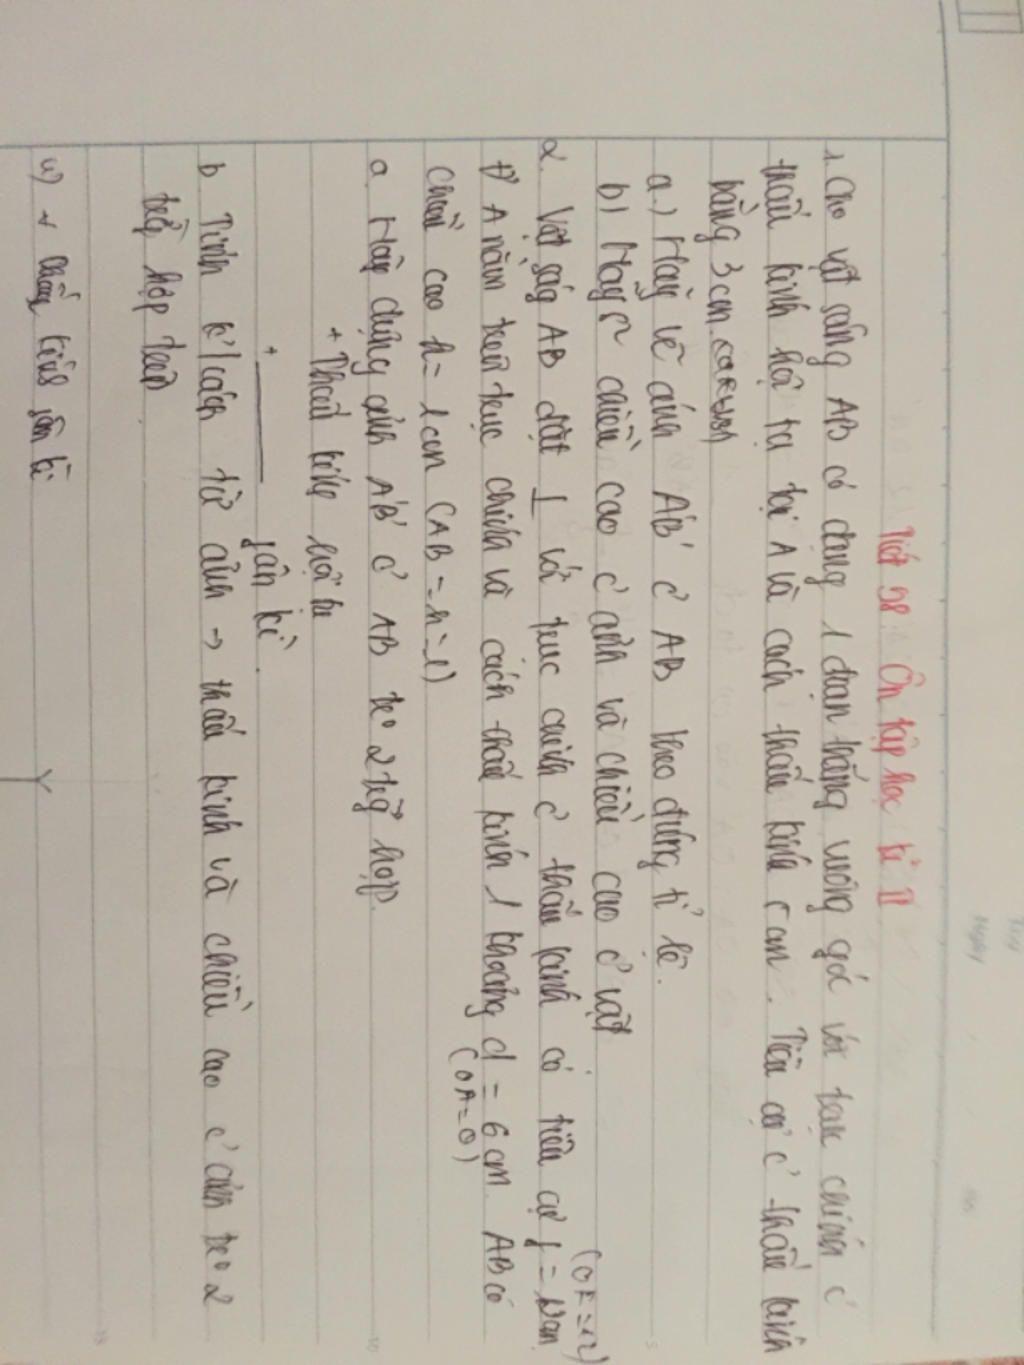 Tiết 58: Ôn tập học kì II
1. Cho vật sáng AB có dạng 1 đoạn thẳng vuông góc với trục chính c'
thấu kính hội tụ tại A và cách thấu kính 5 cm. Tiêu cự c' thấu kính
bằng 3 cm.
a.) Hãy vẽ ảnh A'B' c' AB theo đúng tỉ lệ.
b) Hãy s² chiều cao c' ảnh và chiều cao c' vật
(OF=12)
2. Vật ság AB đặt ⊥ với trục chính c' thấu kính có tiêu cự f = 12cm
A nằm trên trục chính và cách thấu kính 1 khoảng d = 6 cm. AB có
(OA=6)
chiều cao h = 1 cm (AB = h = 1)
a. Hãy dựng ảnh A'B' c' AB trº 2 trg̀ hợp.
+ Thấu kính hội tụ
+ phân kì.
b Tính k/cách từ ảnh → thấu kính và chiều cao c' ảnh trº 2
trg̀ hợp trên
a) thấu kính phân kì